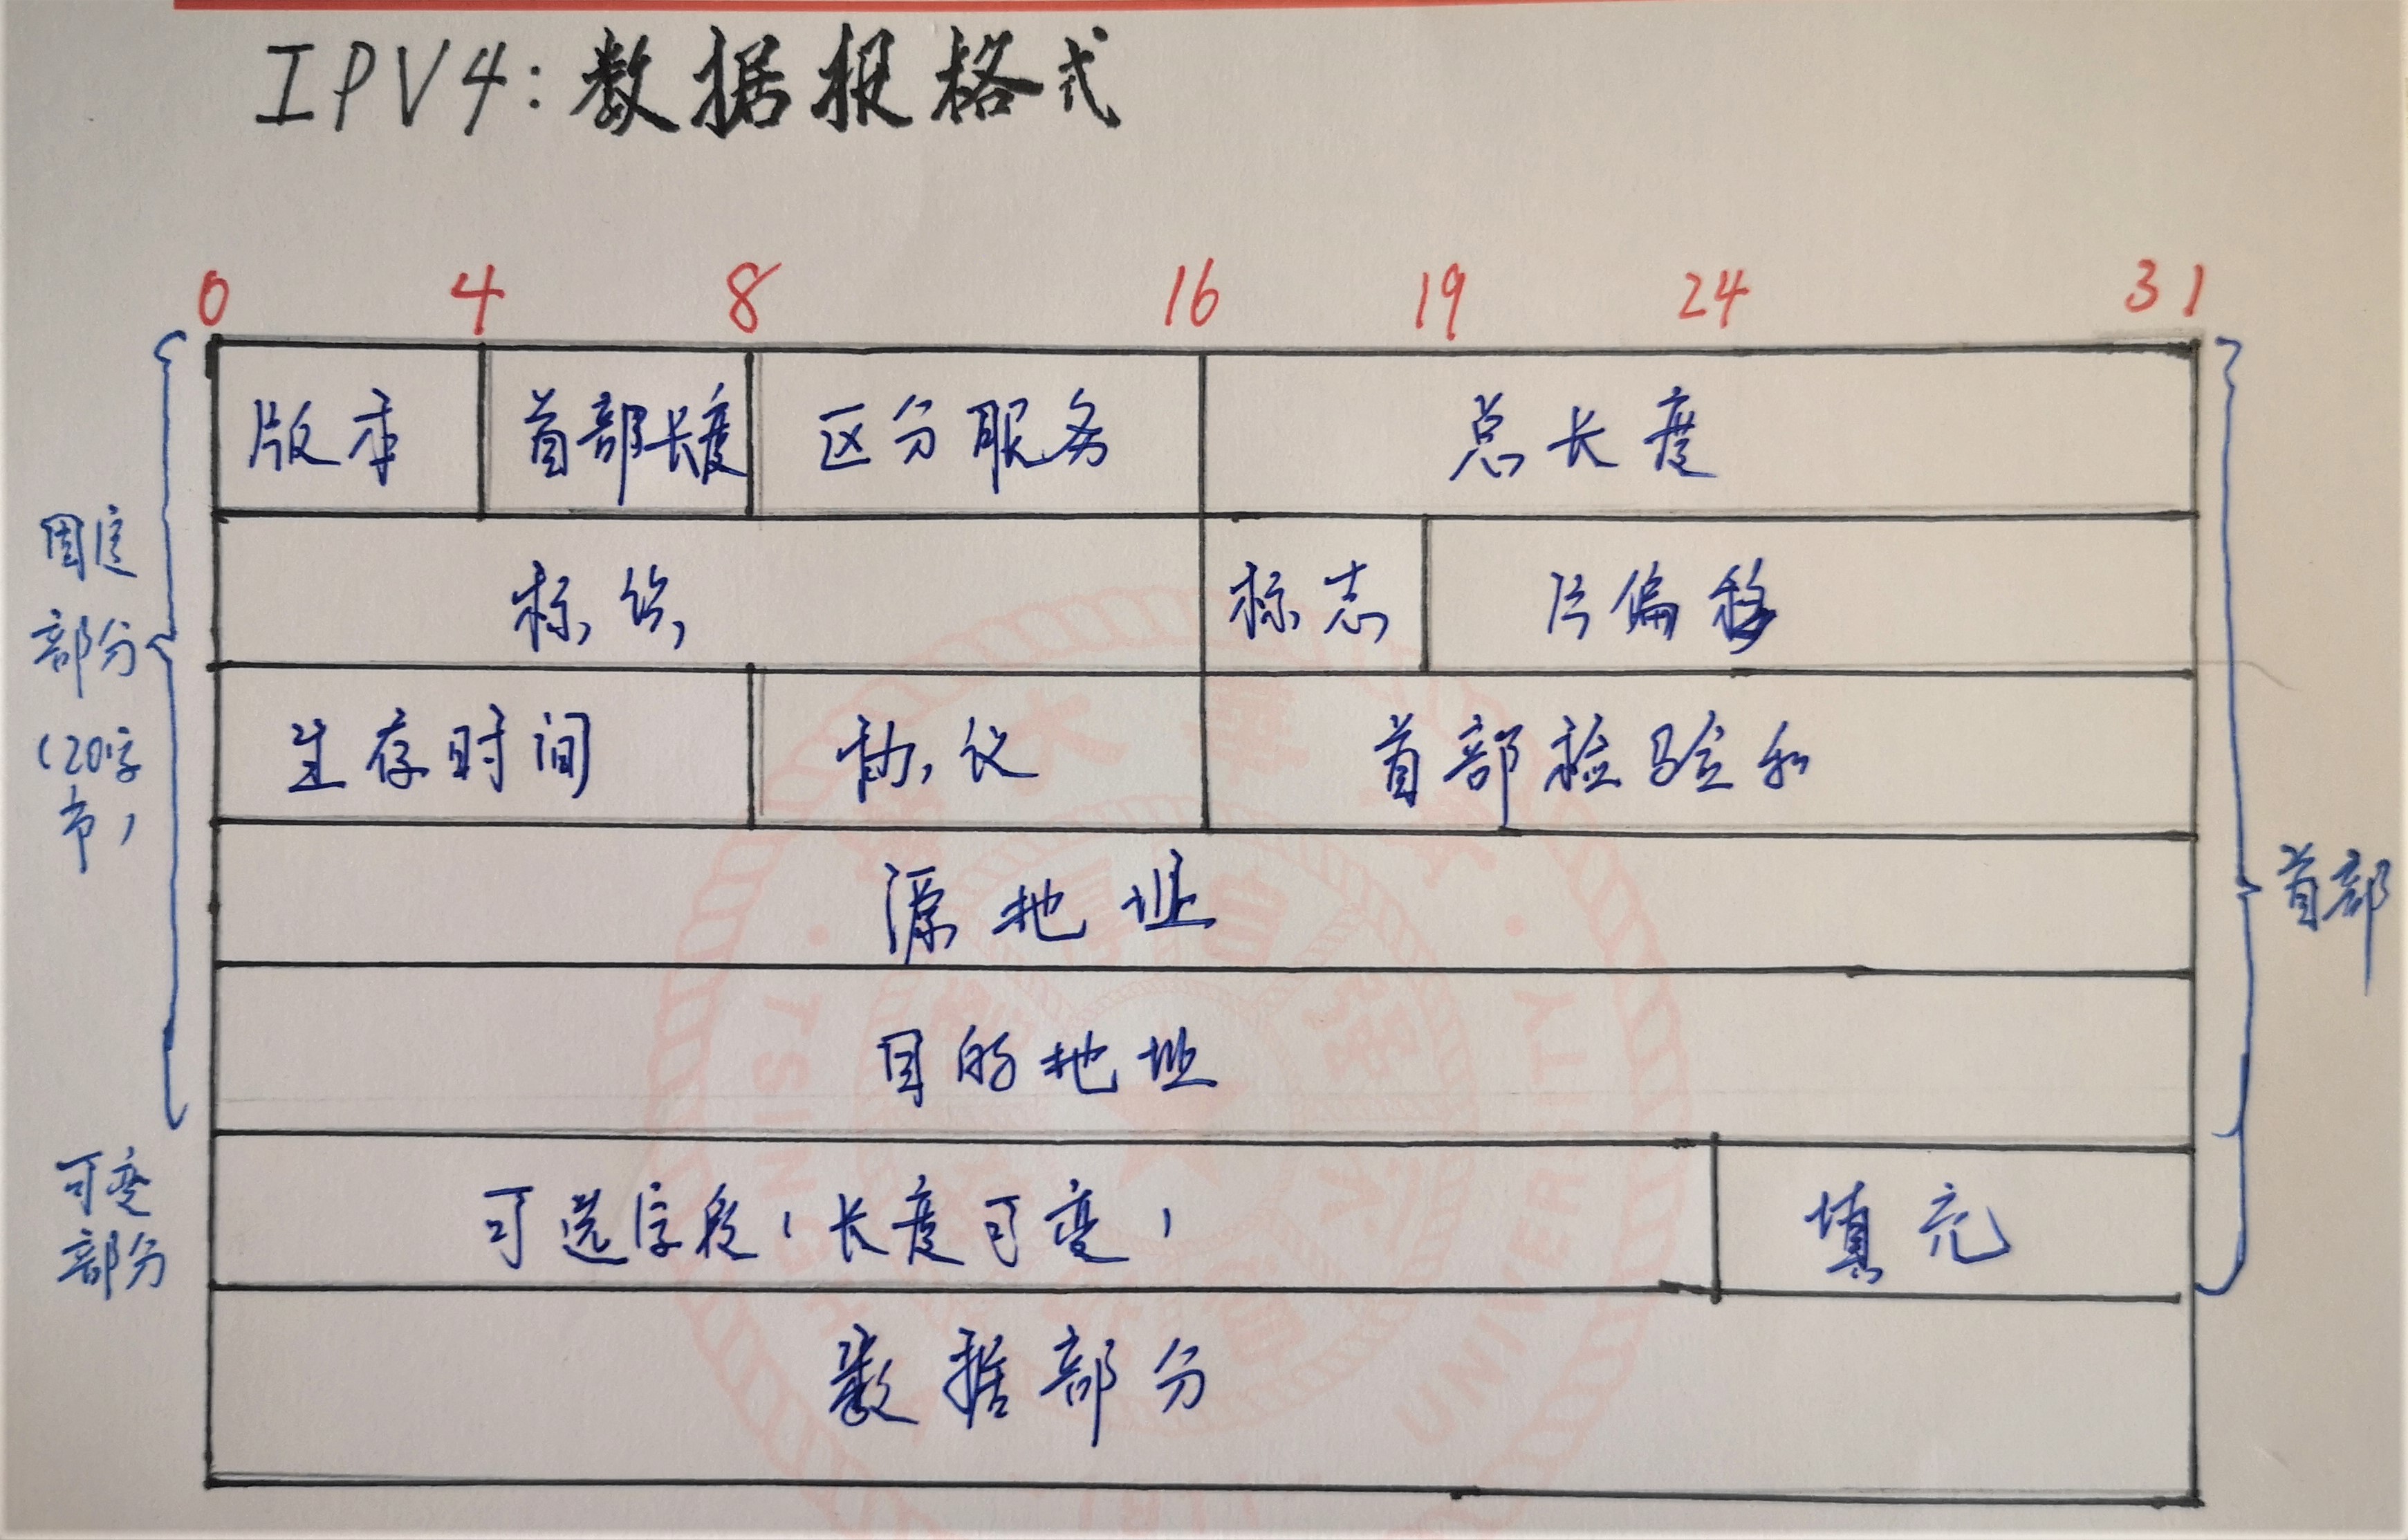 IPV4:数据报格式
0 4 8 16 19 24 31
版本 首部长度 区分服务 总长度
标识 标志 片偏移
生存时间 协议 首部检验和
源地址
目的地址
可选字段(长度可变) 填充
数据部分
固定
部分
(20字
节)
可变
部分
首部
TSINGHUA UNIVERSITY